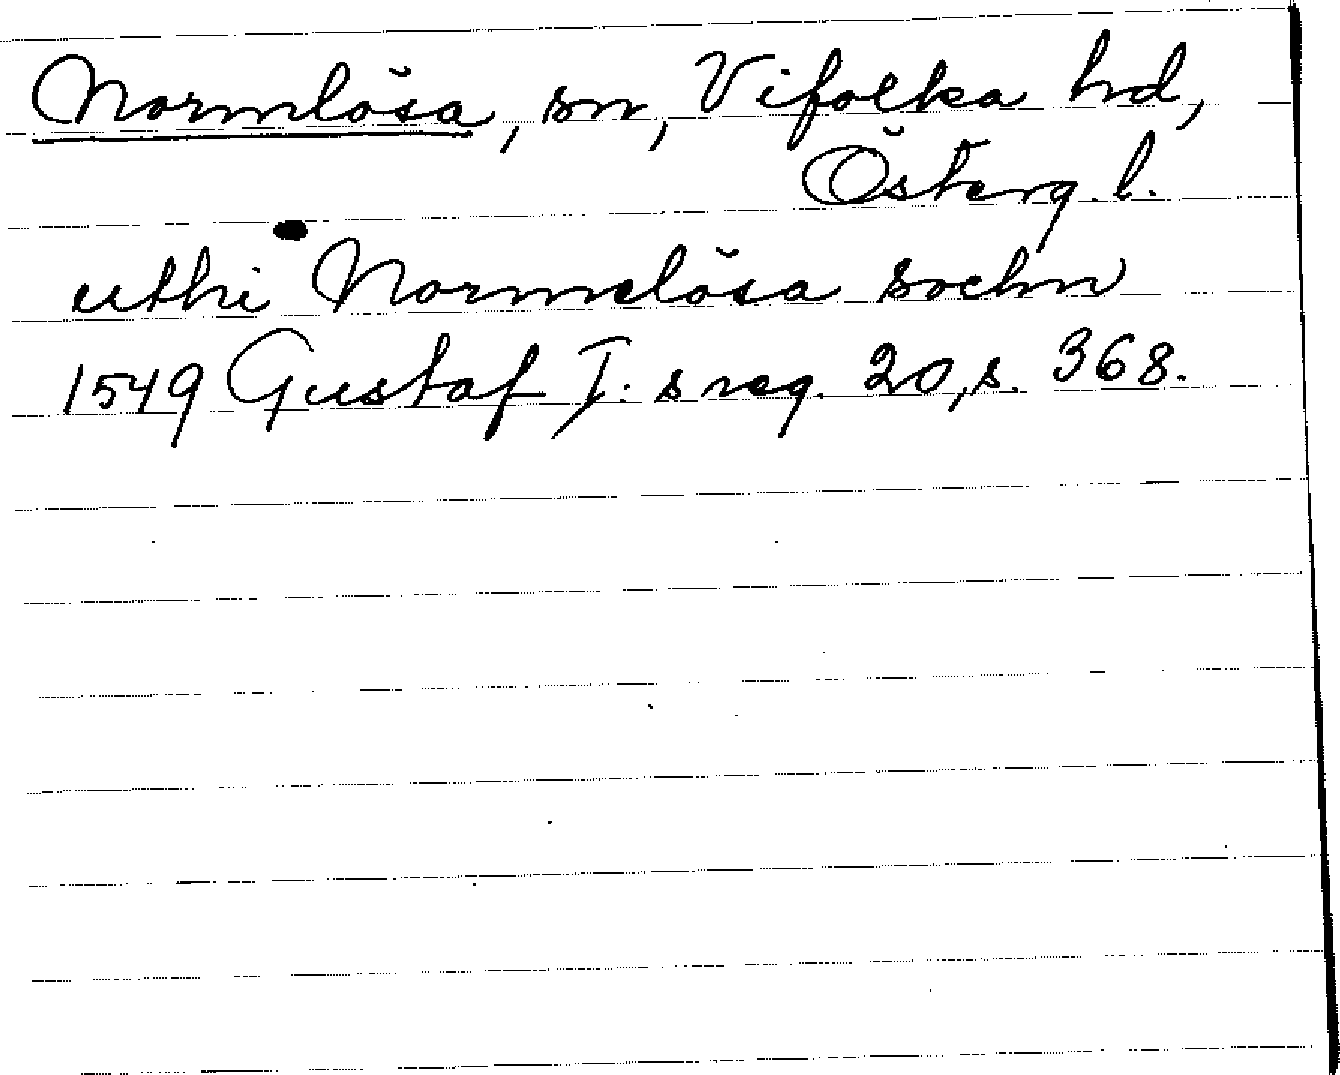 Normlösa, sn, Vifolka hd,
Österg. l.
uthi Normelösa sochn
1549 Gustaf I:s reg. 20, s. 368.